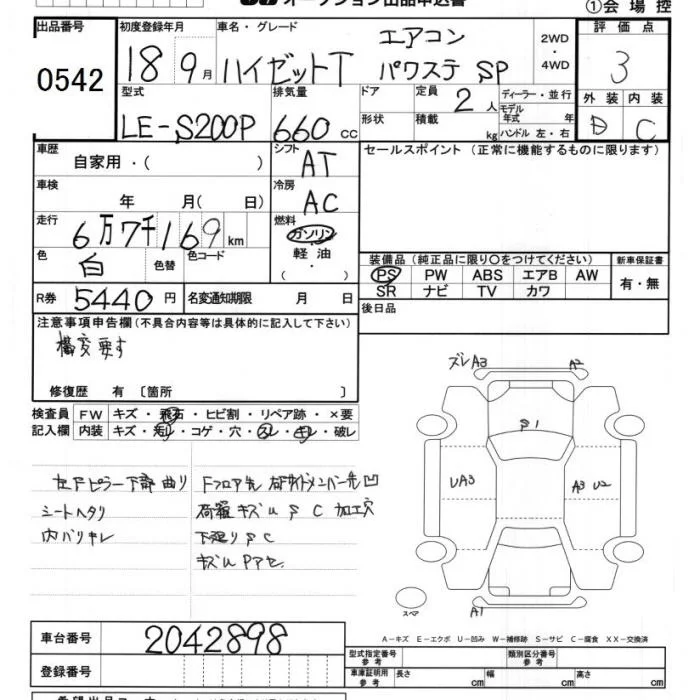 オークション出品申込書
①会場控
出品番号 初度登録年月 車名・グレード 評価点
0542 18 9月 ハイゼットT エアコン パワステ SP 2WD・4WD 3
型式 排気量 ドア 定員 2人 ディーラー・並行 外装 内装
LE-S200P 660cc 形状 積載 kg モデル年式 年 ハンドル 左・右 D C
車歴 自家用・( ) シフト AT セールスポイント (正常に機能するものに限ります)
車検 年 月( 日) 冷房 AC
走行 6万7千169km 燃料 ガソリン
色 白 色替 色コード 軽油 ( ・ )
装備品 (純正品に限り○をつけてください) 新車保証書
PS PW ABS エアB AW 有・無
SR ナビ TV カワ
R券 5440円 名変通知期限 月 日
後日品
注意事項申告欄(不具合内容等は具体的に記入して下さい)
構変要す
修復歴 有 〔箇所 〕
検査員 FW キズ・飛石・ヒビ割・リペア跡・×要
記入欄 内装 キズ・汚れ・コゲ・穴・スレ・キレ・破レ
ズレA3 A2
S1
UA3 A3 U2
A1
スペア
左Fピラー下部曲り Fフロア先 右Fサイドメンバー先凹
シートヘタリ 荷箱キズU S C 加工穴
内バリキレ 下廻りS C
キズU Pアセ
A-キズ E-エクボ U-凹み W-補修跡 S-サビ C-腐食 XX-交換済
車台番号 2042898
型式指定番号 参考 類別区分番号 参考
登録番号
車庫証明用 参考 長さ cm 幅 cm 高さ cm